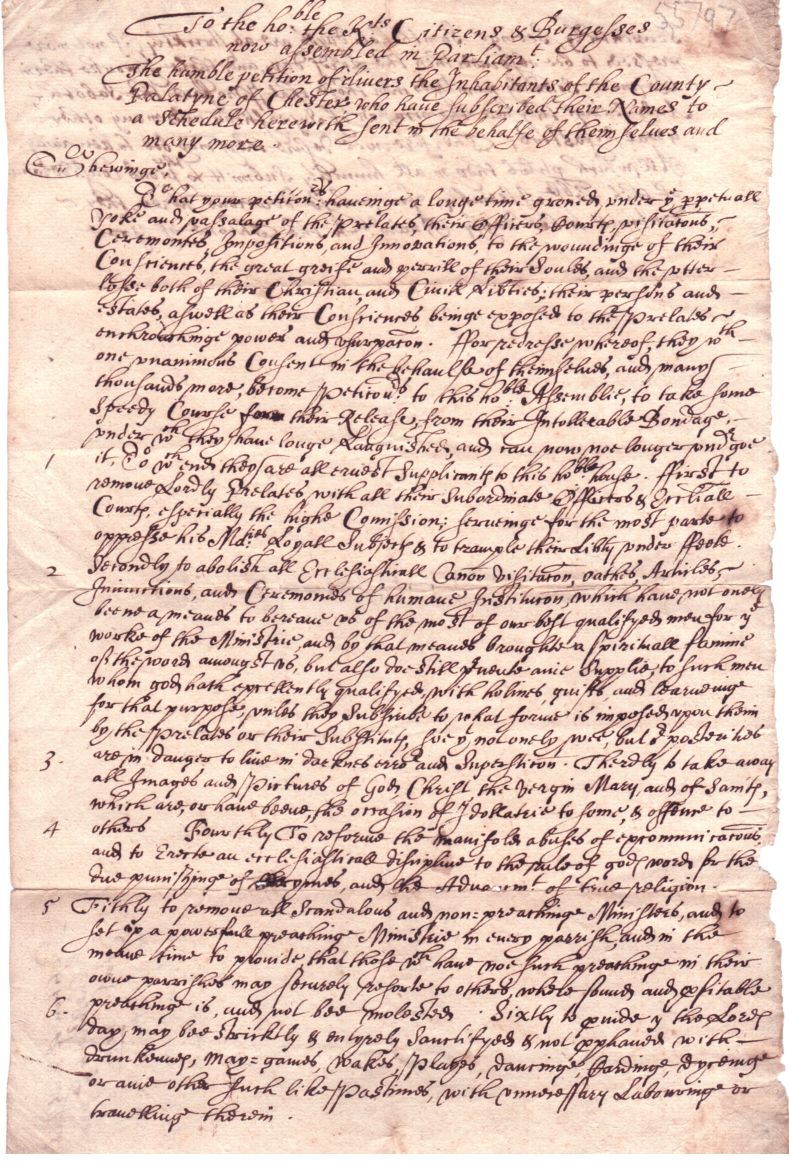 55797
To the ho:ble the Kts Citizens & Burgesses
now assembled in Parliamt:
The humble petition of divers the Inhabitants of the County
Palatyne of Chester who have subscribed their Names to
a schedule herewith sent in the behalfe of themselves and
many more.
Shewinge,
That your petitonrs: haveinge a longe time groned under ye ppetuall
yoke and vassalage of the Prelates, their Officers, Courts, visitatons,
Ceremonies Impositions, and Innovations, to the woundinge of their
Consciences, the great greife and perrill of their Soules, and the utter
losse both of their Christian and Civill Libties; their persons and
estates, aswell as their Consciences beinge exposed to the Prelates
enchrochinge power and usurpacon. Ffor redresse whereof, they wth
one unanimous Consent in the behaulfe of themselves, and many
thousands more, become Petitours to this ho:ble Assemblie, to take some
speedy Course for their Release, from their Intollerable Bondage,
under wch they have longe Languished, and can now noe longer undgoe
1 it, To wch end they are all ernest Supplicants to this hoble house. Ffirst to
remove Lordly Prelates with all their Subordinate Officers & Eccliall
Courts, especially the highe Comission; serveinge for the most parte to
oppresse his Maties Loyall Subjects & to trample their Libty under ffeete.
2 Secondly to abolish all Ecclesiasticall Canon visitaton, oathes, Articles,
Iniunctions, and Ceremonies of humane Institucon, which have not onely
beene a meanes to bereave us of the most of our best qualifyed men for ye
worke of the Ministrie, and by that meanes broughte a spirituall famine
of the word amongst us, but also doe still pvente anie Supplie, to such men
whom god hath excellently qualifyed, with holines, guifts and learneinge
for that purpose, unles they Subscribe to what forme is imposed upon them
by the Prelates or their Substituts, soe yt not onely wee, but or posterities
3. are in danger to live in darknes error and Superstition. Therdly to take away
all Images and Pictures of God Christ the vergin Mary, and of Saints,
which are, or have beene, the occasion of Idollatrie to some, & offence to
4 others Fourthly To reforme the manifold abuses of excommunicatons,
and to Erecte an ecclesiasticall discipline to the rule of gods word for the
due punishinge of crymes, and the Advancmt of true religion.
5 Fifthly to remove all Scandalous and non=preachinge Ministers, and to
set up a powerfull preachinge Ministrie in every parrish, and in the
meane time to provide that those wch have noe such preachinge in their
owne parrishes may securely resorte to others, where sound and pfitable
6. preachinge is, and not bee molested. Sixtly to pvide yt the Lords
day may bee strictly & entyrely Sanctifyed & not pphaned with
drunkennes, may=games, wakes, Playes, dancinge Cardinge, dyceinge
or anie other such like Pastimes, with unnecessary Labouringe or
travelling therein.